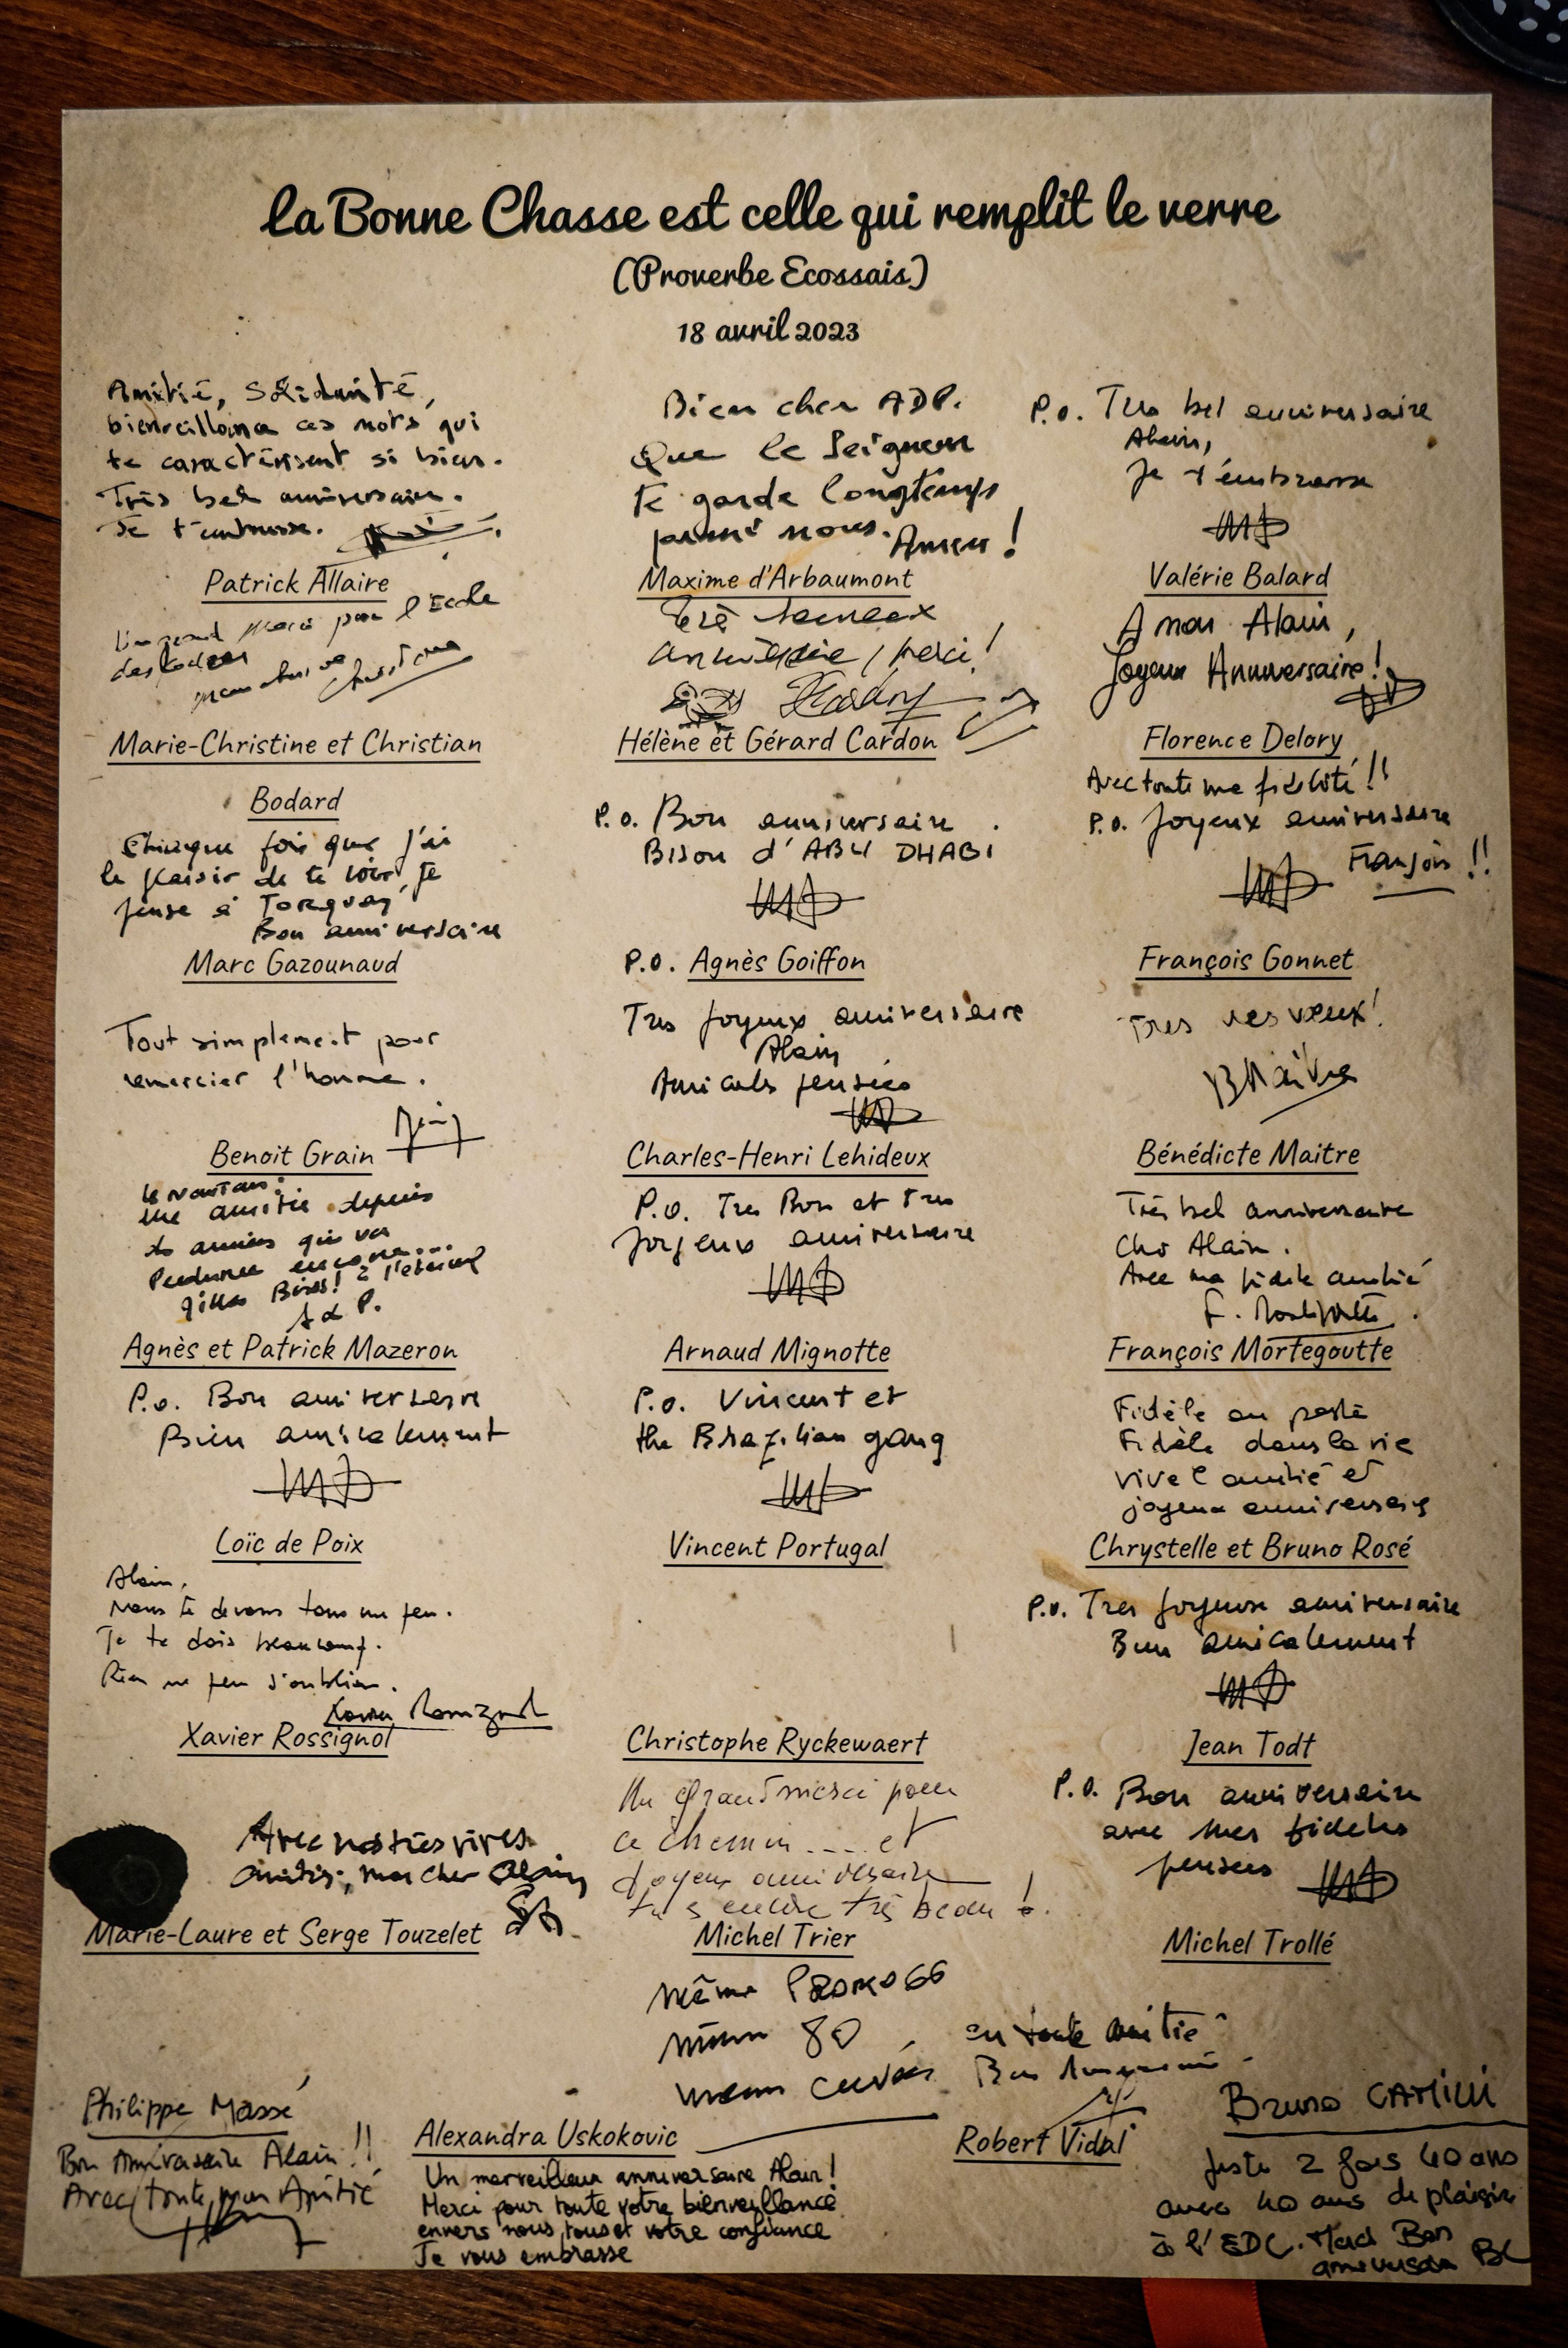 la Bonne Chasse est celle qui remplit le verre
(Proverbe Ecossais)
18 avril 2023
Amitié, Solidarité,
bienveillance ces mots qui
te caractérisent si bien.
Très bel anniversaire.
Je t'embrasse.
Patrick Allaire
Bien cher ADP.
Que le Seigneur
te garde longtemps
parmi nous. Amen !
Maxime d'Arbaumont
P.O. Tres bel anniversaire
Alain,
Je t'embrasse
Valérie Balard
Un grand merci pour l'Ecole
des
Marie-Christine et Christian
Bodard
anniversaire, merci !
Hélène et Gérard Cardon
A mon Alain,
Joyeux Anniversaire !
Florence Delory
Chaque fois que j'ai
le plaisir de te voir, je
pense à Torquay
Bon anniversaire
Marc Gazounaud
P.O. Bon anniversaire
Bison d'ABU DHABI
P.O. Agnès Goiffon
Avec toute ma fidélité !!
P.O. Joyeux anniversaire
François !!
François Gonnet
Tout simplement pour
remercier l'homme.
Benoit Grain
Tres Joyeux anniversaire
Alain
Amicales pensées
Charles-Henri Lehideux
BMaitre
Bénédicte Maitre
une amitié depuis
années qui va
Agnès et Patrick Mazeron
P.O. Tres Bon et Tres
Joyeux anniversaire
Arnaud Mignotte
Très bel anniversaire
Cher Alain.
Avec ma fidèle amitié
François Mortegoutte
P.O. Bon anniversaire
Bien amicalement
Loïc de Poix
P.O. Vincent et
the Brazilian gang
Vincent Portugal
Fidèle au poste
Fidèle dans la vie
Vive l'amitié et
joyeux anniversaire
Chrystelle et Bruno Rosé
Alain,
Nous te devons tous un peu.
Je te dois beaucoup.
Rien ne peu s'oublier.
Xavier Rossignol
Christophe Ryckewaert
P.O. Tres Joyeux anniversaire
Bien amicalement
Jean Todt
Avec nos très vives
amitiés, mon cher Alain
Marie-Laure et Serge Touzelet
Un grand merci pour
ce chemin .... et
Joyeux anniversaire
très beau !
Michel Trier
P.O. Bon anniversaire
avec mes fideles
pensées
Michel Trollé
même PROMO 66
même 80
même cuvée
en toute amitié
Philippe Massé
Bon Anniversaire Alain !!
Avec toute mon Amitié
Alexandra Uskokovic
Un merveilleux anniversaire Alain !
Merci pour toute votre bienveillance
envers nous tous et votre confiance
Je vous embrasse
Robert Vidal
Bruno CAMILLI
Juste 2 fois 40 ans
avec 40 ans de plaisir
à l'EDC. Merci Bon
anniversaire BC